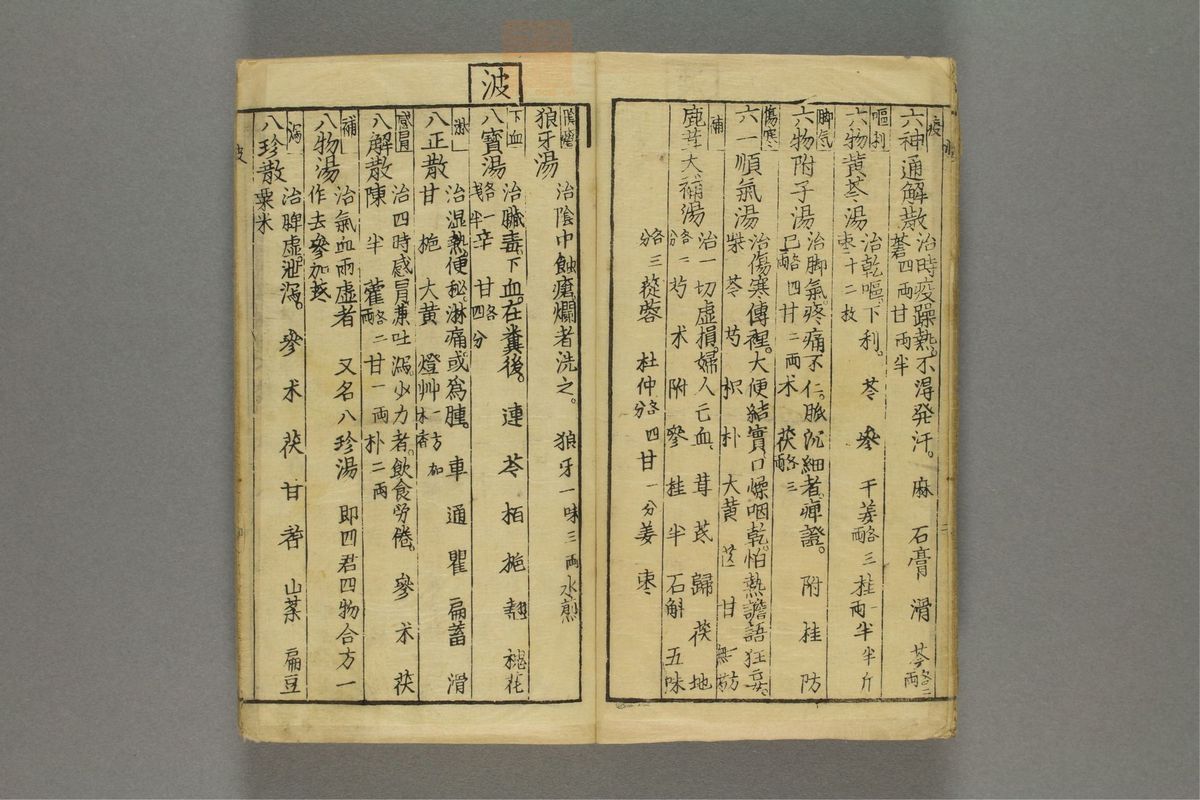 疫
六神通解散
治時疫躁熱。不得発汗。 麻 石膏 滑 芩各二両
蒼四両甘両半
嘔利
六物黄芩湯
治乾嘔。下利。 芩 參 干姜各三両桂一両半半斤
枣十二枚
脚気
六物附子湯
治脚氣。疼痛不仁。脈沉細者。痺證。 附 桂 防
已各四両甘二両 术 茯各三両
傷寒
六一順氣湯
治傷寒傳裡。大便結實。口燥咽乾。怕熱譫語狂妄。
柴 芩 芍 枳 朴 大黄 芒 甘
補
鹿茸大補湯
治一切虚損。婦人亡血。 茸 芪 歸 茯 地
芍 术 附 參 桂 半 石斛 五味
各三分 蓯蓉 杜仲各四分甘一分姜 枣
波
陰瘡
狼牙湯
治陰中蝕瘡爛者洗之。 狼牙一味三両水煎
下血
八寶湯
治臟毒。下血。在糞後。 連 芩 柏 梔 翹 槐花
淋
八正散
治湿熱。便秘。淋痛。或為腫。 車 通 瞿 扁蓄 滑
甘 梔 大黄 燈艸一方加木香
感冒
八解散
治四時感冒兼吐瀉。少力者。飲食労倦。 參 术 茯
陳 半 藿各二両甘一両朴二両
補
八物湯
治氣血両虚者 又名八珍湯 即四君四物合方一
作去參加芪
瀉
八珍散
治脾虚。泄瀉。 參 术 茯 甘 蓍 山薬 扁豆
粟米